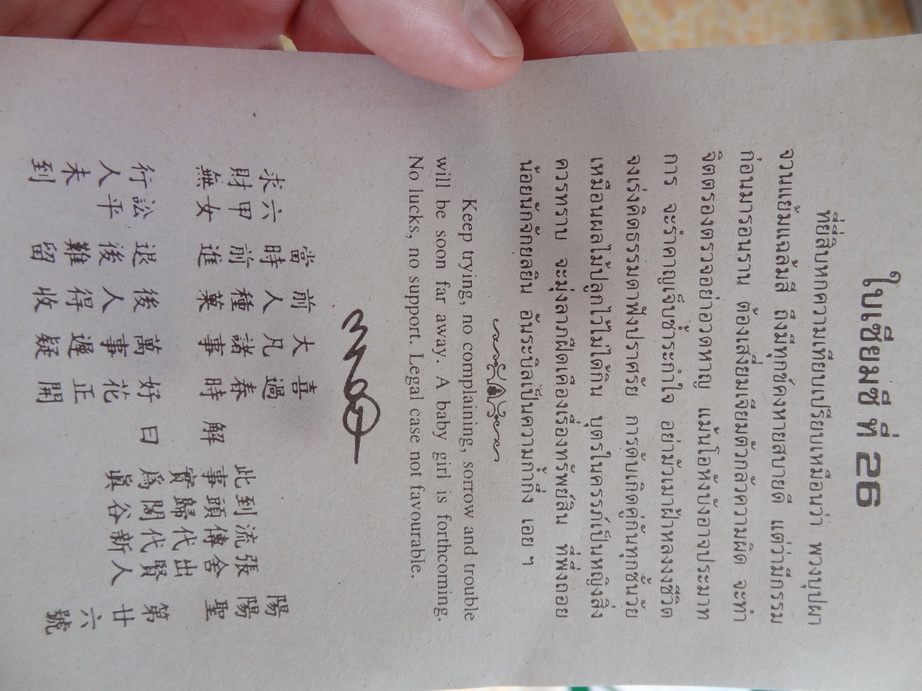 ใบเซียมซี ที่ 26
ที่ยี่สิบหกความเทียบเปรียบเหมือนว่า พวงบุปผา
จวนแย้มแฉล้มสี ถึงมีทุกข์คงหายสบายดี แต่ว่ามีกรรม
ก่อนมารอนราน ต้องเสงี่ยมเจียมตัวกลัวความผิด จะทำ
จิตตรองตรวจอย่าอวดหาญ แม้นโอหังบังอาจประมาท
การ จะรำคาญเจ็บช้ำระกำใจ อย่ามัวเมาฝ้าหลงงงชีวิต
จงเร่งคิดธรรมดาฟังปราศรัย การดับเกิดคู่กันทุกชั้นวัย
เหมือนผลไม้ปลูกไว้ไม่ได้กิน บุตรในครรภ์เป็นหญิงสิ่ง
ควรทราบ จะมุ่งลาภฝืดเคืองเรื่องทรัพย์สิน ที่พึ่งถอย
น้อยนักจักยลยิน อันระบิลเป็นความก้ำกึ่ง เอย ฯ
Keep trying, no complaining, sorrow and trouble
will be soon far away. A baby girl is forthcoming.
No lucks, no support. Legal case not favourable.
陽陽聖 第廿六號
張舍出賢人
流傳代代新
到頭歸閬谷
此事實爲眞
解曰
喜過春時好花正開
大凡諸事萬事遲疑
前人種菓後人得收
當時前進退後難留
六甲女 訟平
求財無 行人未到